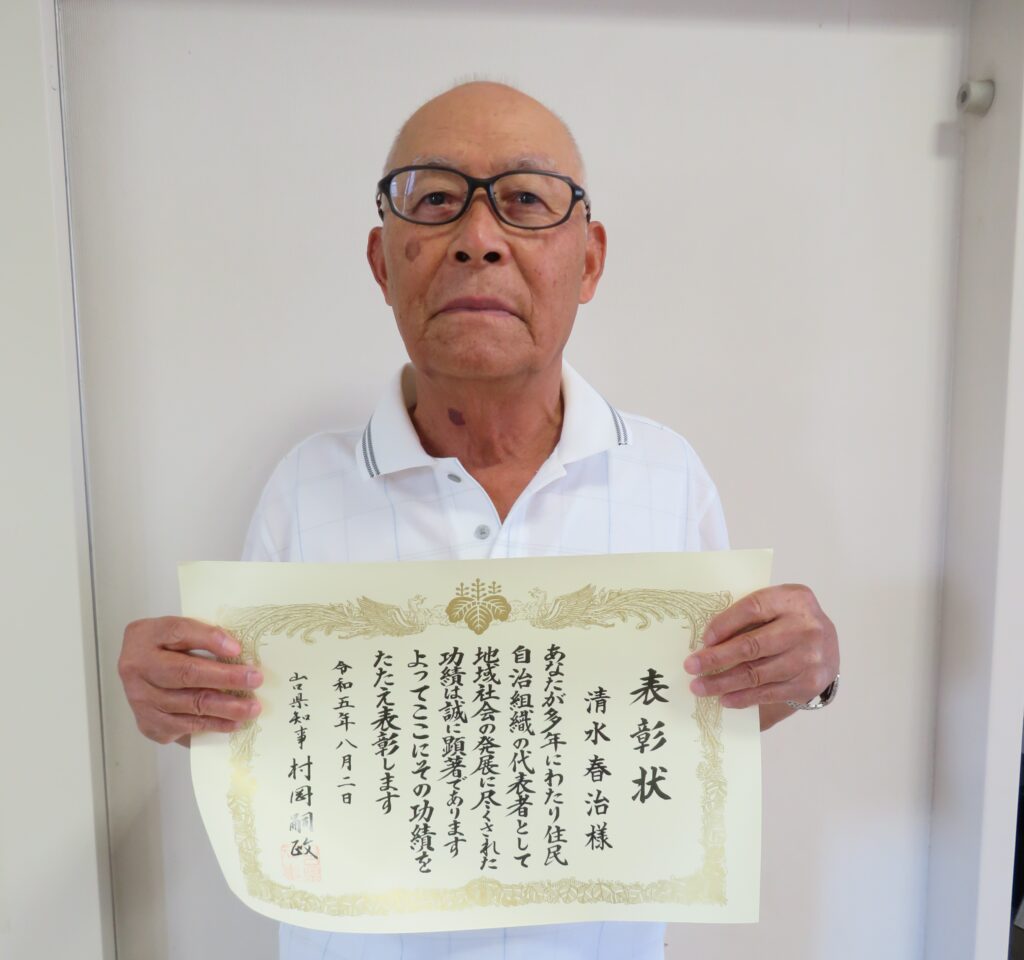 表彰状
清水春治様
あなたが多年にわたり住民
自治組織の代表者として
地域社会の発展に尽くされた
功績は誠に顕著であります
よってここにその功績を
たたえ表彰します
令和五年八月二日
山口県知事 村岡嗣政